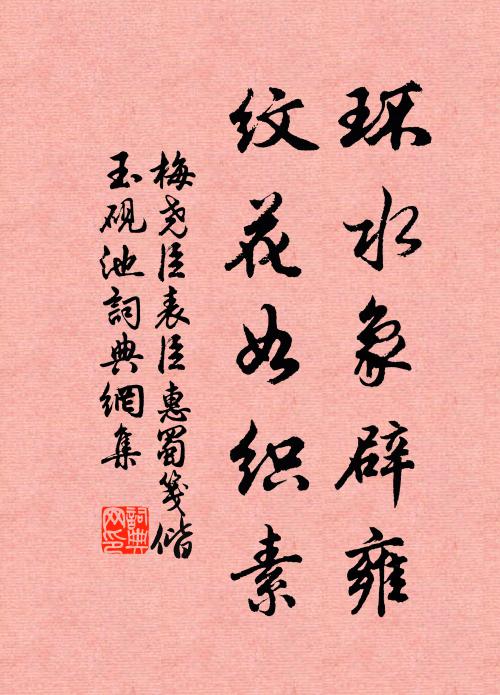 环水象辟雍
纹花如织素
梅尧臣表臣惠蜀笺偕
玉砚池詞典網集
詞典网印